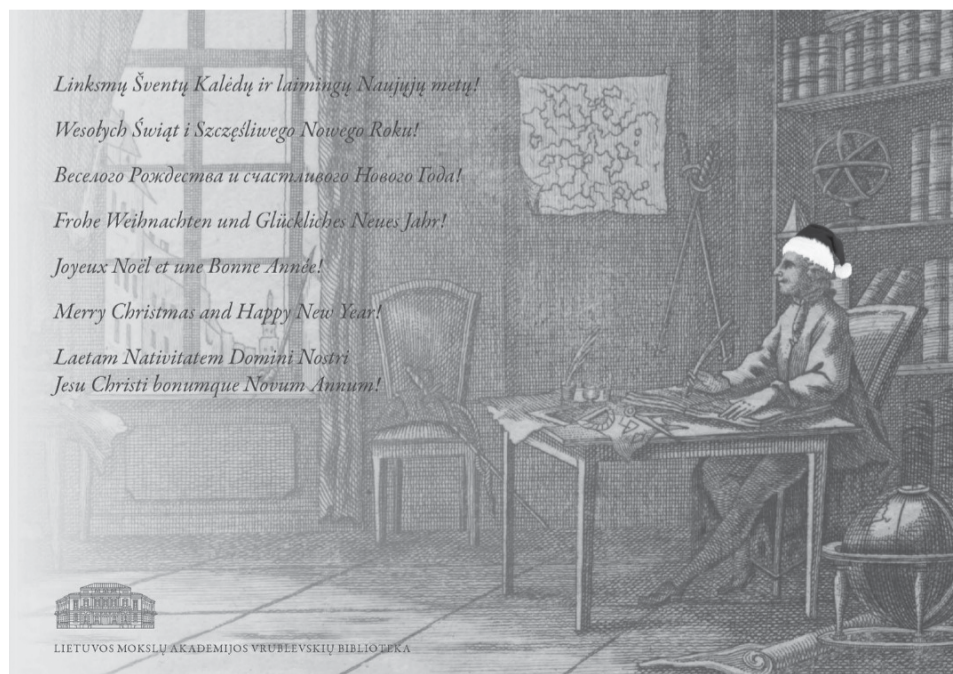 Linksmų Šventų Kalėdų ir laimingų Naujųjų metų!
Wesołych Świąt i Szczęśliwego Nowego Roku!
Веселого Рождества и счастливого Нового Года!
Frohe Weihnachten und Glückliches Neues Jahr!
Joyeux Noël et une Bonne Année!
Merry Christmas and Happy New Year!
Laetam Nativitatem Domini Nostri
Jesu Christi bonumque Novum Annum!
LIETUVOS MOKSLŲ AKADEMIJOS VRUBLEVSKIŲ BIBLIOTEKA